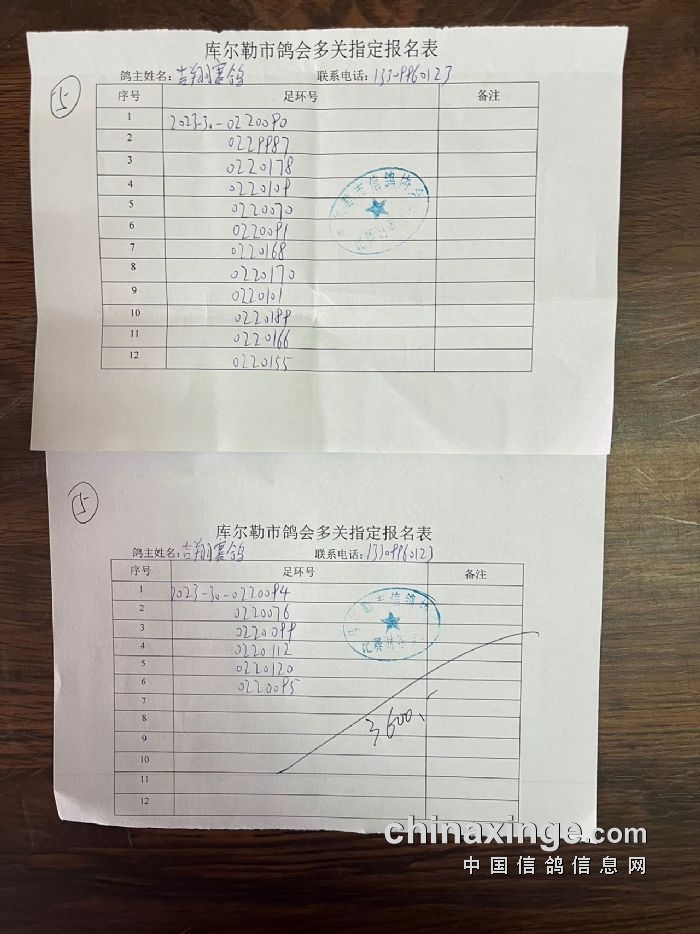 库尔勒市鸽会多关指定报名表
⑤
鸽主姓名：吉翔赛鸽 联系电话：
序号 足环号 备注
1 2023-30-0220090
2 0229987
3 0220178
4 0220109
5 0220070
6 0220091
7 0220168
8 0220170
9 0220101
10 0220189
11 0220166
12 0220155
市信鸽协
⑤
库尔勒市鸽会多关指定报名表
鸽主姓名：吉翔赛鸽 联系电话：13309960123
序号 足环号 备注
1 2023-30-0220094
2 0220076
3 0220099
4 0220112
5 0220120
6 0220095
7
8
9
10
11
12
市信鸽
3600.-
chinaxinge.com
中国信鸽信息网